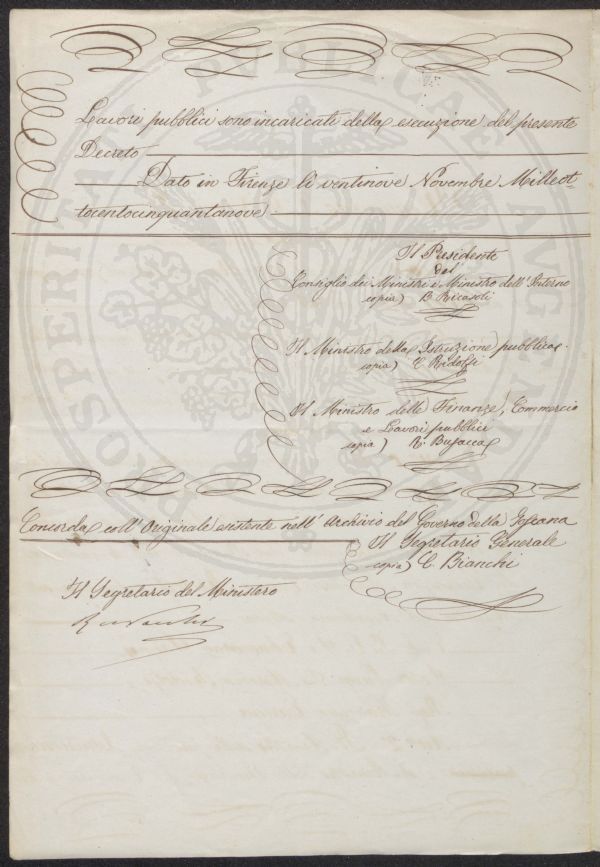 Lavori pubblici sono incaricati della esecuzione del presente
Decreto
Dato in Firenze li ventinove Novembre Milleot-
tocentocinquantanove.
Il Presidente
del
Consiglio dei Ministri e Ministro dell'Interno
copia) B. Ricasoli
Il Ministro della Istruzione pubblica.
copia) C. Ridolfi
Il Ministro delle Finanze, Commercio
e Lavori pubblici
copia) R. Busacca
Concorda coll'Originale esistente nell'Archivio del Governo della Toscana
Il Segretario Generale
copia) C. Bianchi
Il Segretario del Ministero
PROSPERITATI PUBLICAE AUGENDAE